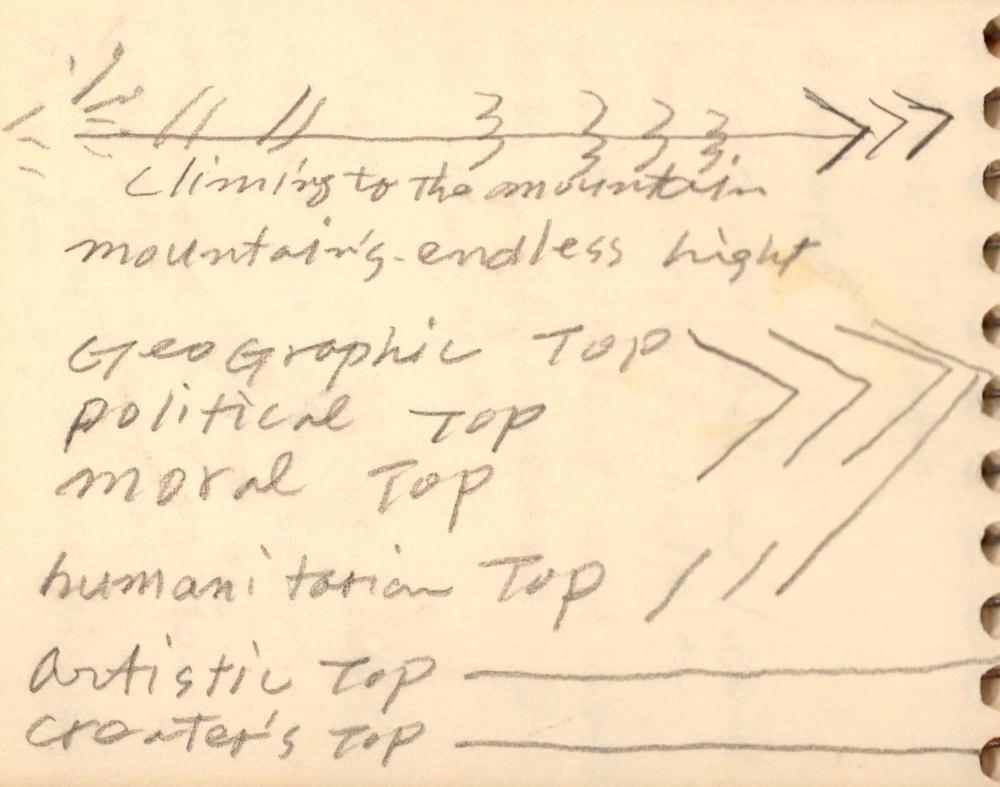 climing to the mountain
mountain's endless hight
GeoGraphic Top
political Top
moral Top
humanitarian Top
artistic Top
creater's Top